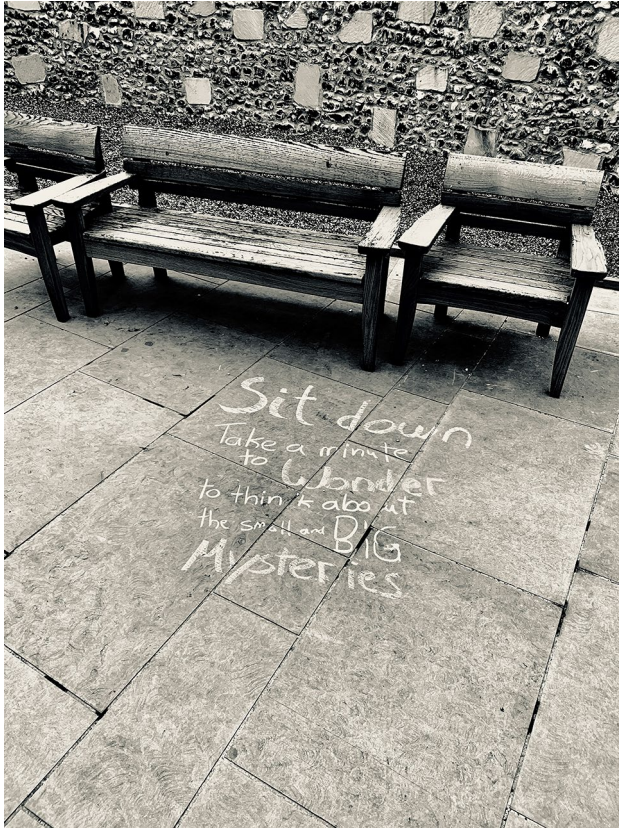 Sit down
Take a minute
to Wonder
to think about
the small and BIG
Mysteries